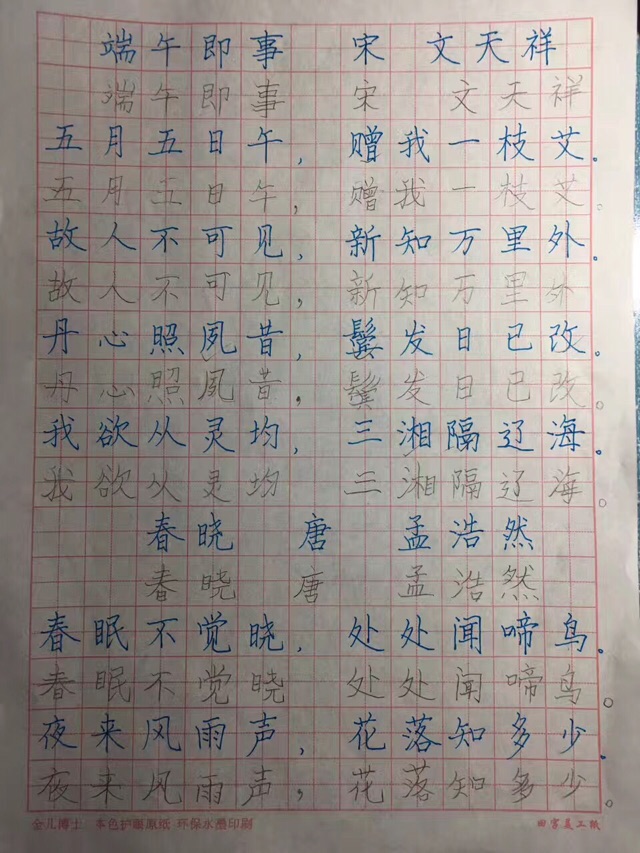 端午即事 宋 文天祥
端午即事 宋 文天祥
五月五日午，赠我一枝艾。
五月五日午，赠我一枝艾。
故人不可见，新知万里外。
故人不可见，新知万里外
丹心照夙昔，鬓发日已改。
丹心照夙昔，鬓发日已改。
我欲从灵均，三湘隔辽海。
我欲从灵均 三湘隔辽海。
春晓 唐 孟浩然
春晓 唐 孟浩然
春眠不觉晓，处处闻啼鸟。
春眠不觉晓 处处闻啼鸟。
夜来风雨声，花落知多少。
夜来风雨声，花落知多少。
金儿博士 本色护眼原纸 环保水墨印刷 田宫美工纸